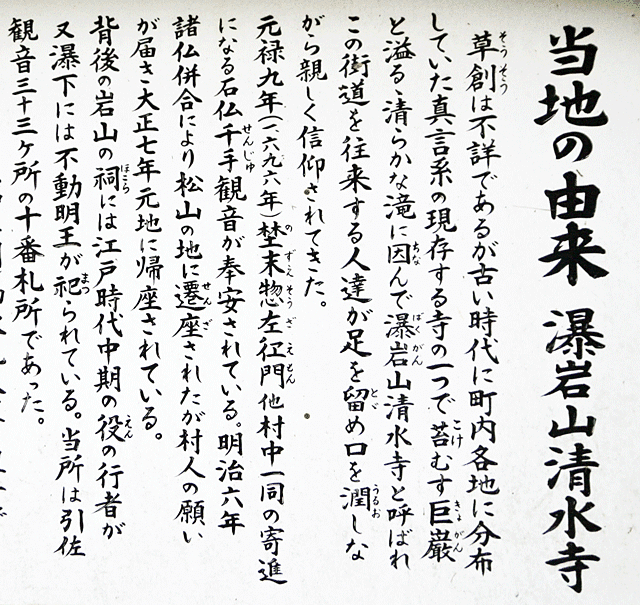 当地の由来 瀑岩山清水寺
草創は不詳であるが古い時代に町内各地に分布
していた真言系の現存する寺の一つで苔むす巨巌
と溢る清らかな滝に因んで瀑岩山清水寺と呼ばれ
この街道を往来する人達が足を留め口を潤しな
がら親しく信仰されてきた。
元禄九年(一六九六年)埜末惣左衛門他村中一同の寄進
になる石仏千手観音が奉安されている。明治六年
諸仏併合により松山の地に遷座されたが村人の願い
が届き大正七年元地に帰座されている。
背後の岩山の祠には江戸時代中期の役の行者が
又瀑下には不動明王が祀られている。当所は引佐
観音三十三ヶ所の十番札所であった。